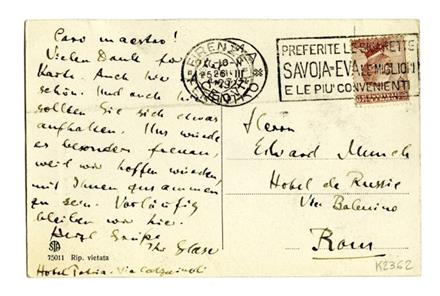 Caro maestro!
Vielen Dank für
Karte. Auch hier
schön. Und auch
sollten Sie sich etwas
aufhalten. Uns würde
es besonders freuen,
weil wir hoffen würden,
mit Ihnen zusammen
zu sein. Vorläufig
bleiben wir hier.
Herzl. Grüße
Ihr Glaser
Hotel Via Calzaiuoli
STA
75011 Rip. vietata
FIRENZE
PREFERITE LE SIGARETTE
SAVOJA=EVA LE MIGLIORI
E LE PIU' CONVENIENTI
Herrn
Edvard Munch
Hotel de Russie
Via Babuino
Rom
K2362